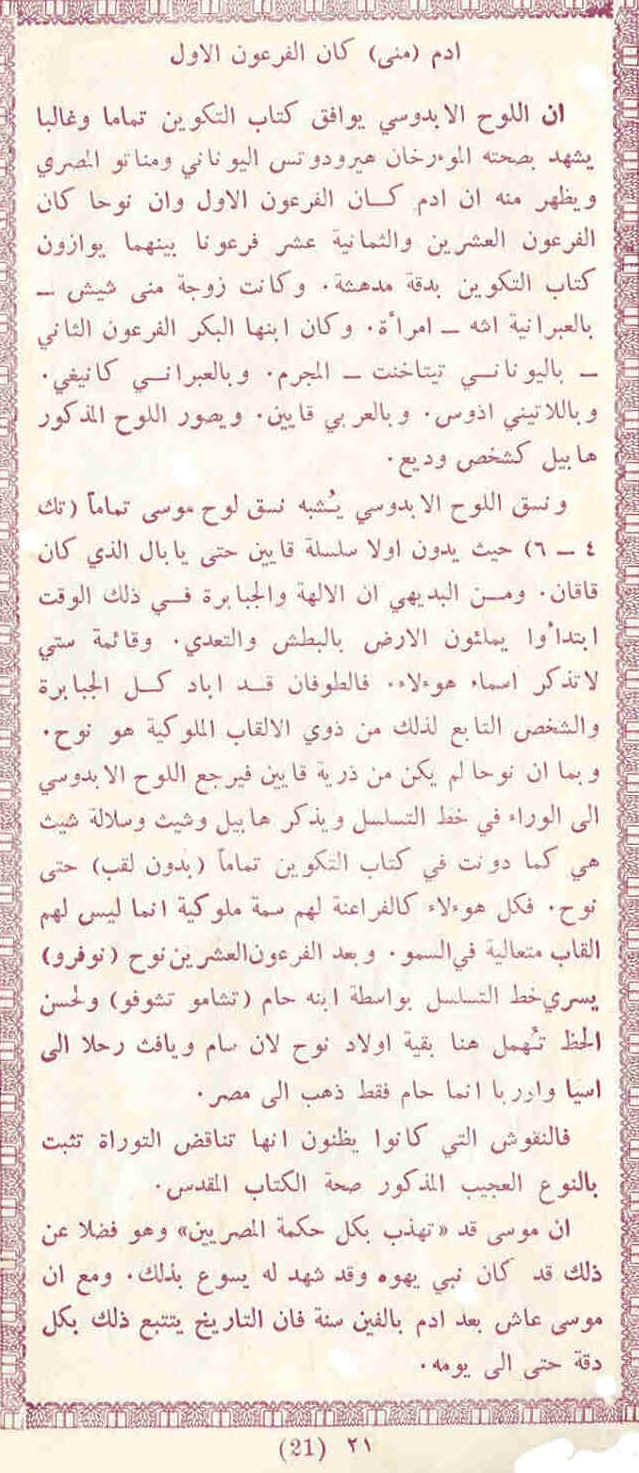 ادم (منى) كان الفرعون الاول
ان اللوح الابدوسي يوافق كتاب التكوين تماما وغالبا
يشهد بصحته الموءرخان هيرودوتس اليوناني ومناتو المصري
ويظهر منه ان ادم كان الفرعون الاول وان نوحا كان
الفرعون العشرين والثمانية عشر فرعونا بينهما يوازون
كتاب التكوين بدقة مدهشة. وكانت زوجة منى شيش ــ
بالعبرانية اشه ــ امرأة. وكان ابنها البكر الفرعون الثاني
ــ باليوناني تيتاخنت ــ المجرم. وبالعبراني كانيغي.
وباللاتيني اذوس. وبالعربي قايين. ويصور اللوح المذكور
هابيل كشخص وديع.
ونسق اللوح الابدوسي يُشبه نسق لوح موسى تماماً (تك
٤ ــ ٦) حيث يدون اولا سلسلة قايين حتى يابال الذي كان
قاقان. ومن البديهي ان الالهة والجبابرة في ذلك الوقت
ابتدأوا يملئون الارض بالبطش والتعدي. وقائمة ستي
لاتذكر اسماء هوءلاء. فالطوفان قد اباد كل الجبابرة
والشخص التابع لذلك من ذوي الالقاب الملوكية هو نوح.
وبما ان نوحا لم يكن من ذرية قايين فيرجع اللوح الابدوسي
الى الوراء في خط التسلسل ويذكر هابيل وشيث وسلالة شيث
هي كما دونت في كتاب التكوين تماماً (بدون لقب) حتى
نوح. فكل هوءلاء كالفراعنة لهم سمة ملوكية انما ليس لهم
القاب متعالية في السمو. وبعد الفرعون العشرين نوح (نوفرو)
يسري خط التسلسل بواسطة ابنه حام (تشامو تشوفو) ولحسن
الحظ تُهمل هنا بقية اولاد نوح لان سام ويافث رحلا الى
اسيا واوربا انما حام فقط ذهب الى مصر.
فالنقوش التي كانوا يظنون انها تناقض التوراة تثبت
بالنوع العجيب المذكور صحة الكتاب المقدس.
ان موسى قد «تهذب بكل حكمة المصريين» وهو فضلا عن
ذلك قد كان نبي يهوه وقد شهد له يسوع بذلك. ومع ان
موسى عاش بعد ادم بالفين سنة فان التاريخ يتتبع ذلك بكل
دقة حتى الى يومه.
٢١ (21)